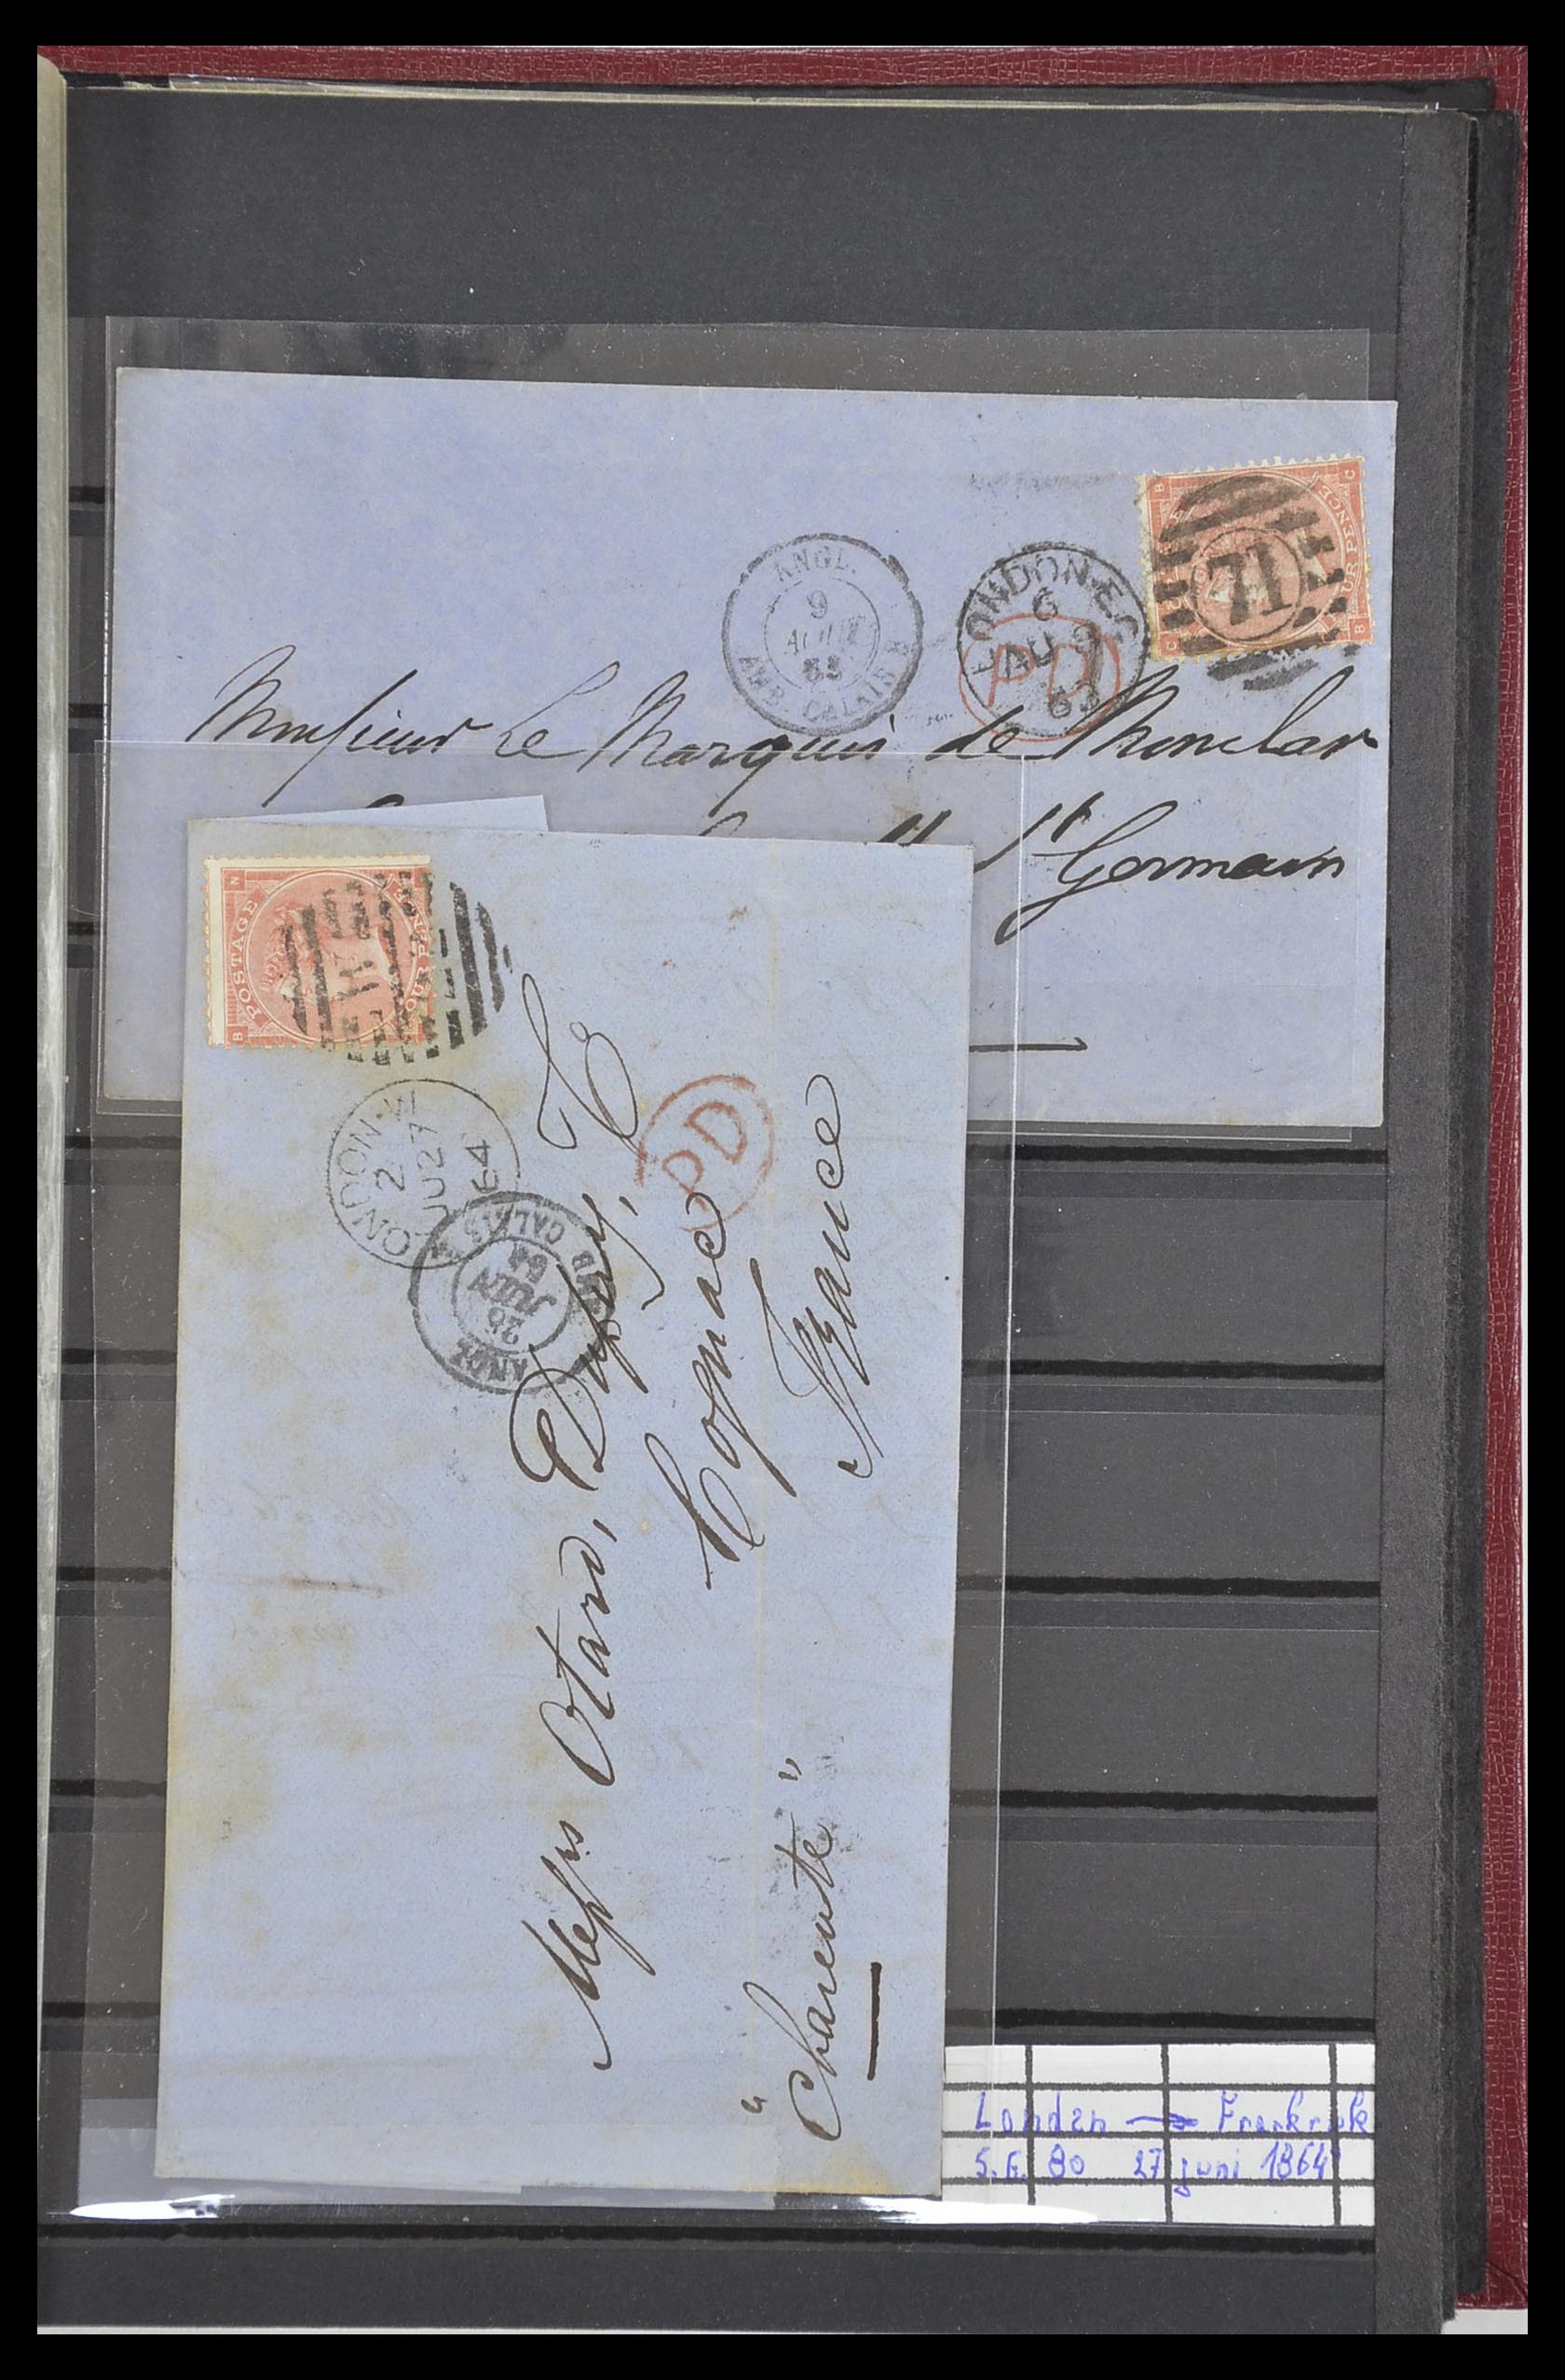 B C
FOUR PENCE
C B
71
ANGL.
9
AOUT
63
AMB. CALAIS
LONDON·E.C
6
AU 9
63
PD
Monsieur Le Marquis de Monclar
St Germain
B N
POSTAGE
FOUR PEN
LONDON·W
2
JU27
64
PD
ANGL.
28
JUIN
64
AMB CALAIS
Messrs Otard, Dupuy, & Co
Cognac
France
"Charente"
Londen → Frankrijk
S.G. 80 27 juni 1864